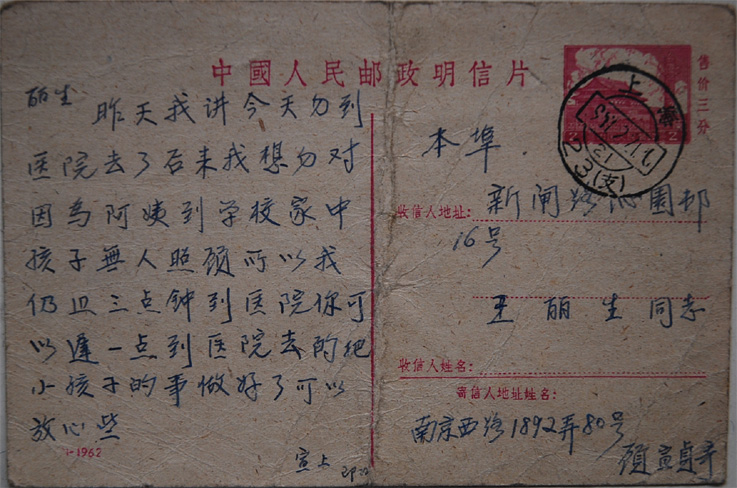 中國人民邮政明信片
售价三分
上海
23(支)
丽生
昨天我讲今天勿到
医院去了后来我想勿对
因为阿姨到学校家中
孩子無人照顾所以我
仍旦三点钟到医院你可
以遲一点到医院去的把
小孩子的事做好了可以
放心些
宣上
1-1962
本埠
收信人地址:新闸路沁園邨
16号
王丽生同志
收信人姓名:
寄信人地址姓名:
南京西路1892弄80号
顾宣貞寄